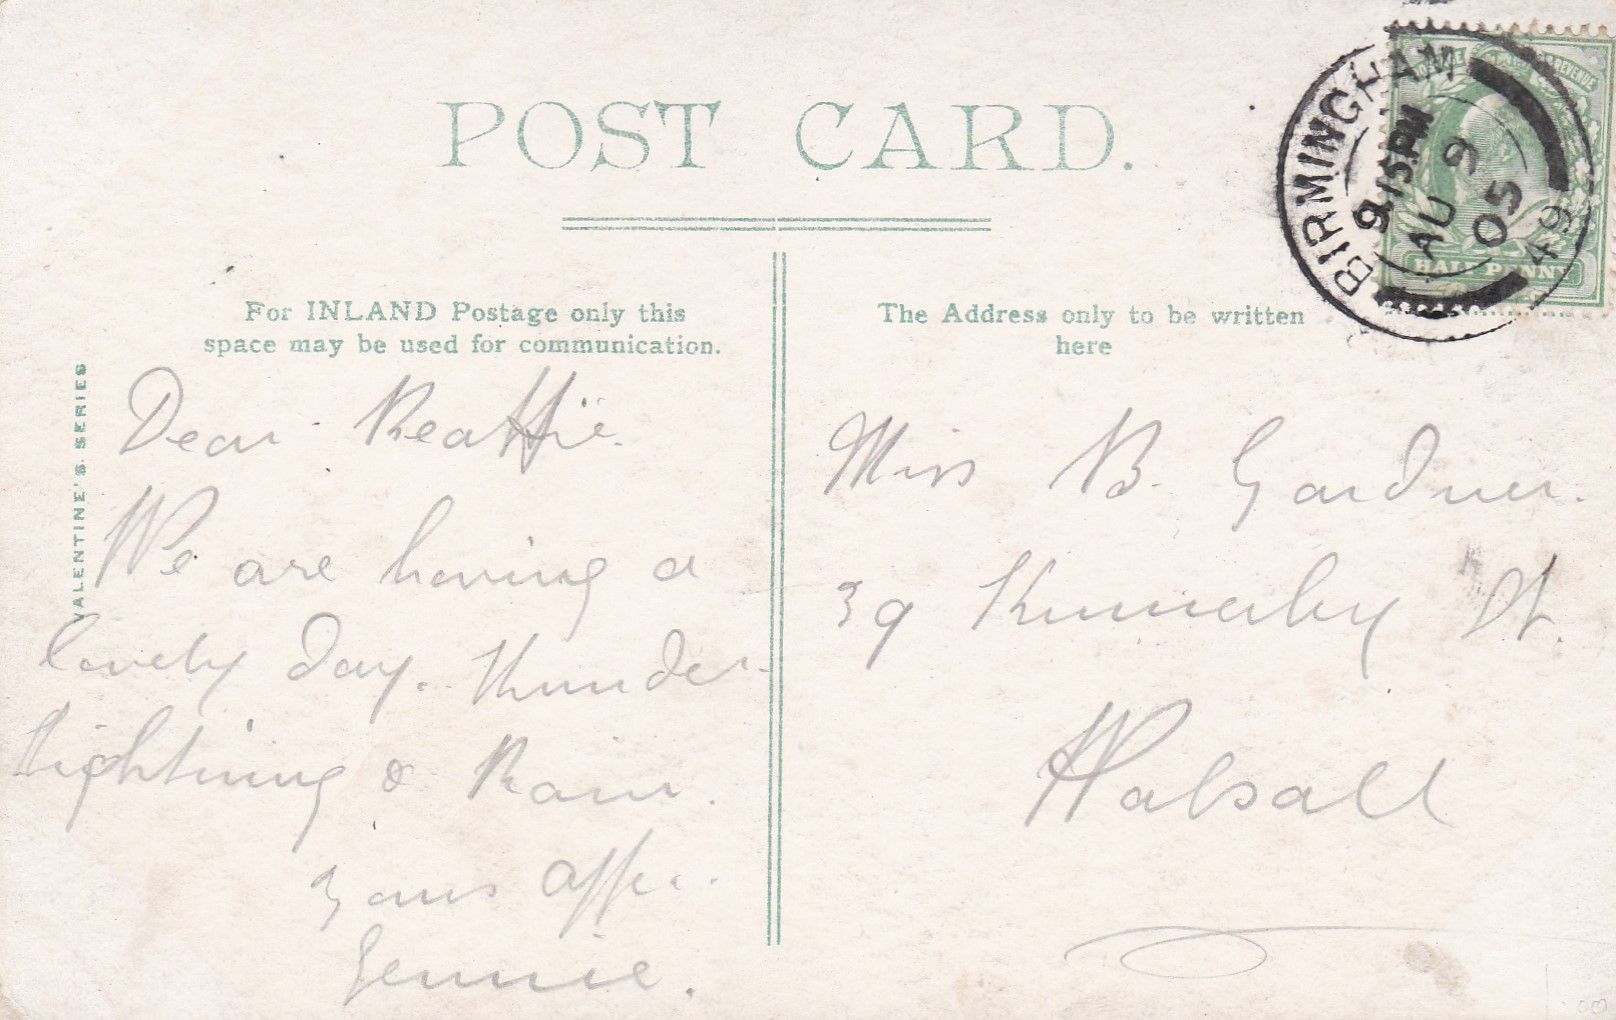 POST CARD.
BIRMINGHAM
9.15 PM
AU 9
05
49
HALF PENNY
For INLAND Postage only this
space may be used for communication.
The Address only to be written
here
VALENTINE'S SERIES
Dear Beattie.
We are having a
lovely day. thunder
lightning & Rain.
yours affec.
Jennie.
Miss B. Gardner.
39 St.
Walsall